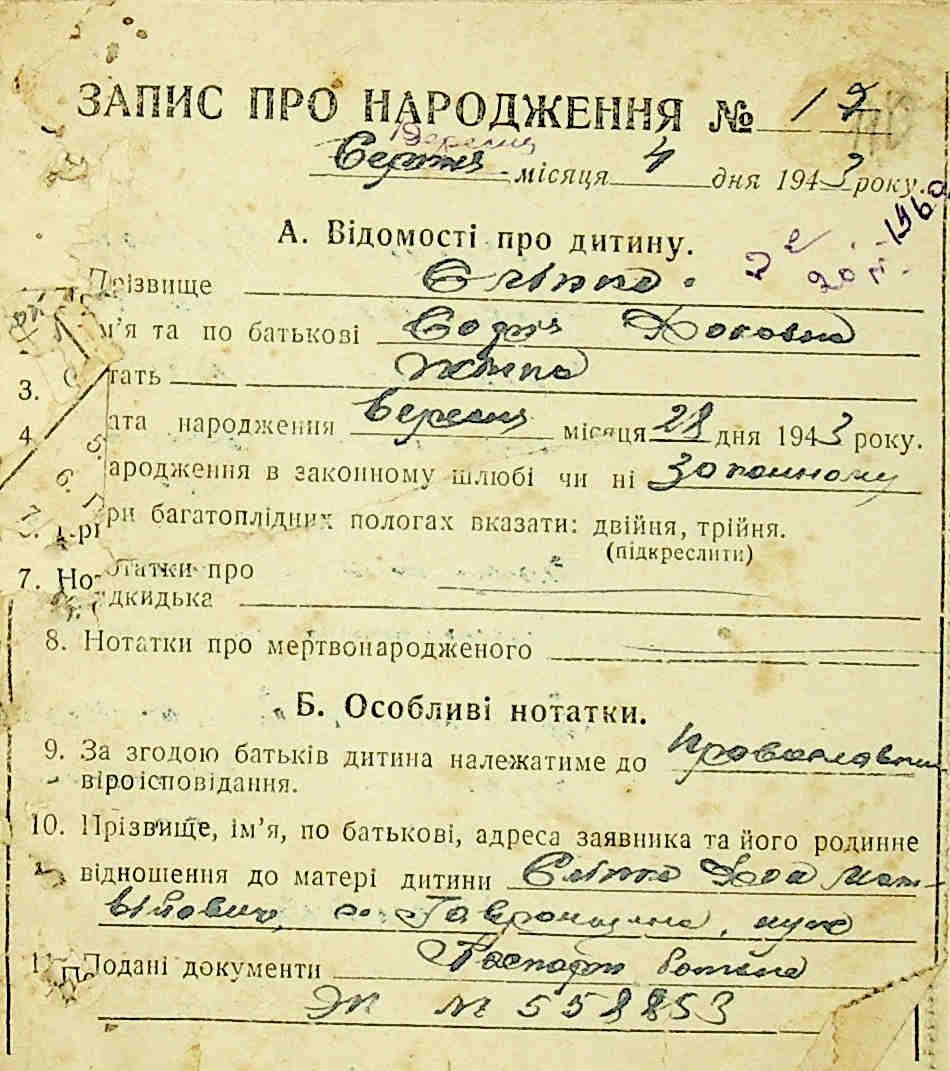 ЗАПИС ПРО НАРОДЖЕННЯ № 12
Вересня
Серпня місяця 4 дня 1943 року.
А. Відомості про дитину.
Прізвище Сліпко
м’я та по батькові Софія
3. Стать Жіноча
4. ата народження Вересня місяця 28 дня 1943 року.
5. ародження в законному шлюбі чи ні законному
6. При багатоплідних пологах вказати: двійня, трійня.
(підкреслити)
7. Но татки про
дкидька
8. Нотатки про мертвонародженого
Б. Особливі нотатки.
9. За згодою батьків дитина належатиме до Православн
віроісповідання.
10. Прізвище, ім’я, по батькові, адреса заявника та його родинне
відношення до матері дитини Сліпко Мат-
війович, с. Гавронщина, муж
11. Подані документи Паспорт батька
№ 558853